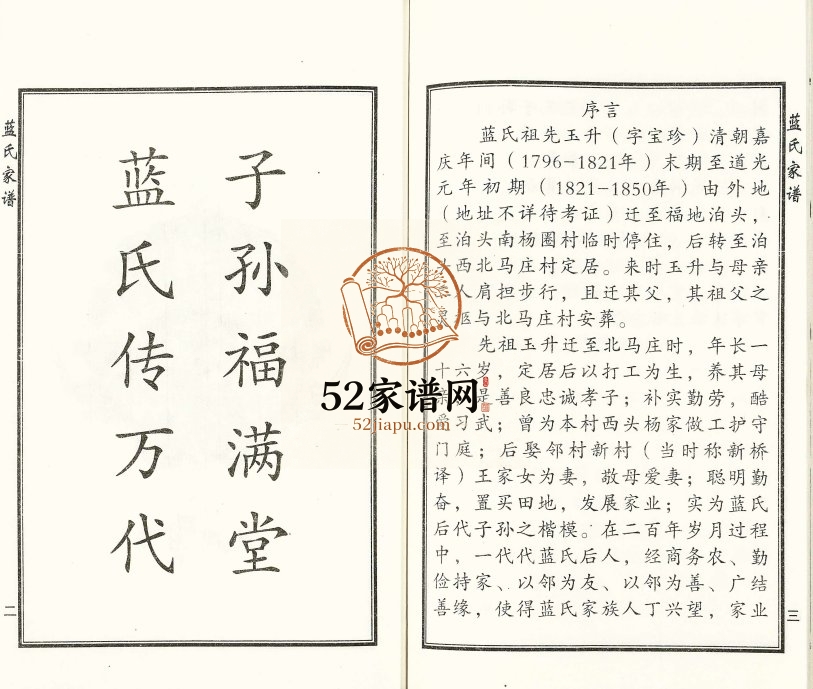 蓝氏家谱
子孙福满堂
蓝氏传万代
二
52家谱网
52jiapu.com
序言
蓝氏祖先玉升（字宝珍）清朝嘉
庆年间（1796-1821年）末期至道光
元年初期（1821-1850年）由外地
（地址不详待考证）迁至福地泊头，
至泊头南杨圈村临时停住，后转至泊
西北马庄村定居。来时玉升与母亲
人肩担步行，且迁其父，其祖父之
柩与北马庄村安葬。
先祖玉升迁至北马庄时，年长一
十六岁，定居后以打工为生，养其母
亲 是善良忠诚孝子；补实勤劳，酷
习武；曾为本村西头杨家做工护守
门庭；后娶邻村新村（当时称新桥
译）王家女为妻，敬母爱妻；聪明勤
奋，置买田地，发展家业；实为蓝氏
后代子孙之楷模。在二百年岁月过程
中，一代代蓝氏后人，经商务农、勤
俭持家、以邻为友、以邻为善、广结
善缘，使得蓝氏家族人丁兴望，家业
蓝氏家谱
三